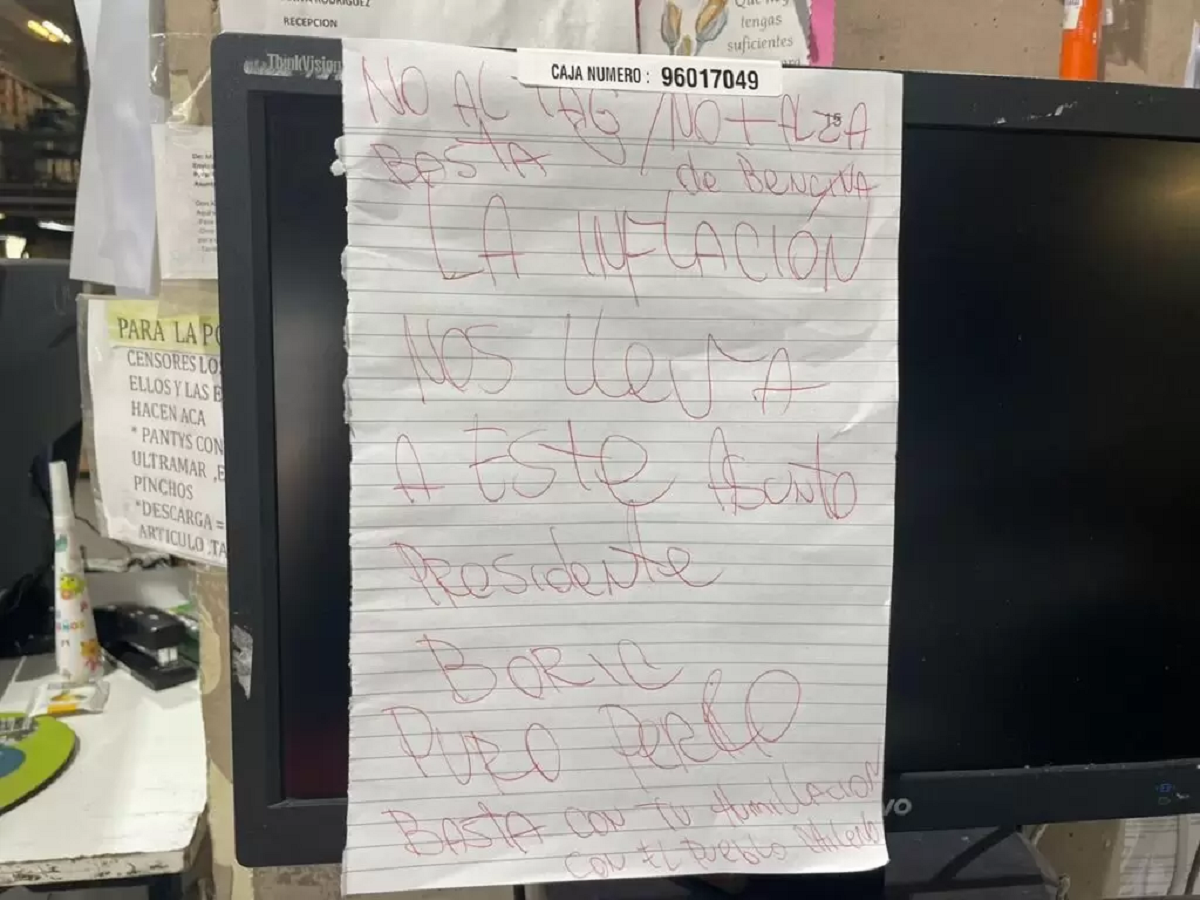 RODRIGUEZ
RECEPCION
Que hoy
tengas
suficientes
ThinkVision
CAJA NUMERO: 96017049
NO AL TAG / NO + ALZA
BASTA de BENCINA
LA INFLACIÓN
NOS lleva
A Este Asunto
Presidente
BORIC
PURO PERSO
BASTA CON TU HUMILLACION
CON EL PUEBLO CHILENO
PARA LA PO
CENSORES LO
ELLOS Y LAS E
HACEN ACA
* PANTYS CON
ULTRAMAR ,E
PINCHOS
*DESCARGA =
ARTICULO ,TA
VO